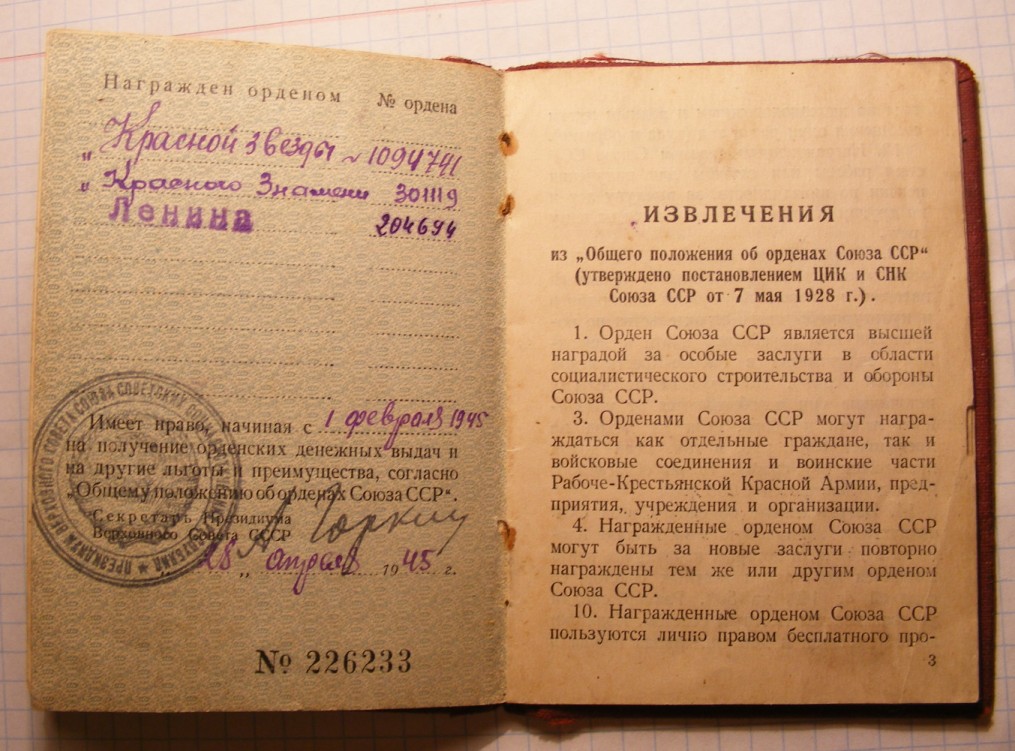 Награжден орденом № ордена
„Красной Звезды 1094741
„Красного Знамени 301119
Ленина 204694
Имеет право, начиная с 1 февраля 1945
на получение орденских денежных выдач и
на другие льготы и преимущества, согласно
„Общему положению об орденах Союза ССР“.
Секретарь Президиума
Верховного Совета СССР
А Горкин
„28„ апреля 1945 г.
№ 226233
ПРЕЗИДИУМ ВЕРХОВНОГО СОВЕТА СОЮЗА СОВЕТСКИХ
ИЗВЛЕЧЕНИЯ
из „Общего положения об орденах Союза ССР“
(утверждено постановлением ЦИК и СНК
Союза ССР от 7 мая 1928 г.).
1. Орден Союза ССР является высшей
наградой за особые заслуги в области
социалистического строительства и обороны
Союза ССР.
3. Орденами Союза ССР могут награ-
ждаться как отдельные граждане, так и
войсковые соединения и воинские части
Рабоче-Крестьянской Красной Армии, пред-
приятия, учреждения и организации.
4. Награжденные орденом Союза ССР
могут быть за новые заслуги повторно
награждены тем же или другим орденом
Союза ССР.
10. Награжденные орденом Союза ССР
пользуются лично правом бесплатного про-
3